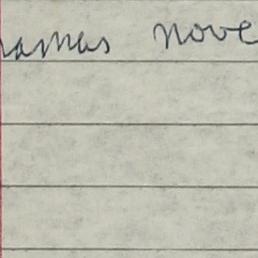 ramas nove